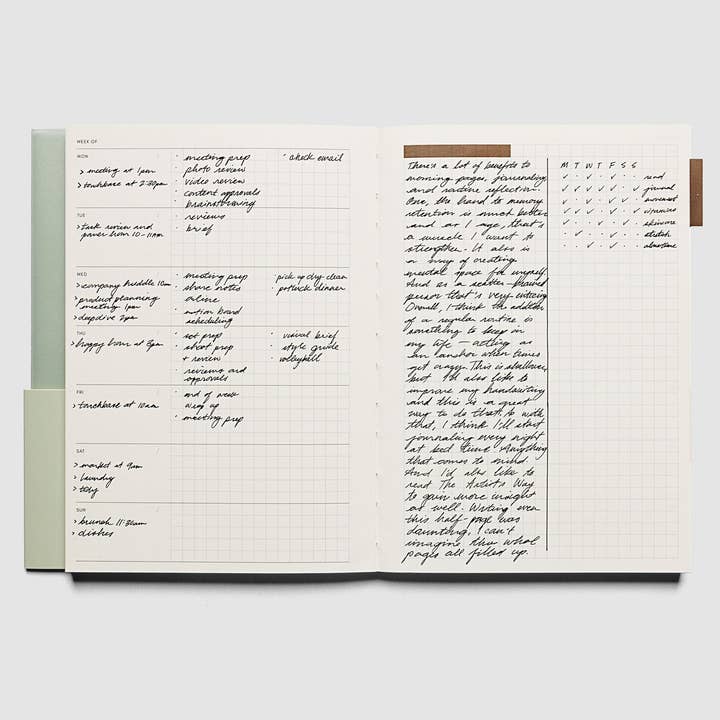 WEEK OF
MON
> meeting at 1pm
> touchbase at 2:30pm
· meeting prep
· photo review
· video review
· content approvals
· brainstorming
· check email
TUE
> task review and
power hour 10-11am
· reviews
· brief
WED
> company huddle 10am
> product planning
meeting 1pm
> deep dive 2pm
· meeting prep
· share notes
online
· motion board
scheduling
· pick up dry clean
· potluck dinner
THU
> happy hour at 5pm
· set prep
· shoot prep
+ review
· reviews and
approvals
· visual brief
· style guide
· volleyball
FRI
> touchbase at 10am
· end of week
wrap up
· meeting prep
SAT
> market at 9am
> laundry
> tidy
SUN
> brunch 11:30am
> dishes
There's a lot of benefits to
morning pages, journaling
and routine reflection.
One, the hand to memory
retention is much better
and as I age, that's
a muscle I want to
strengthen. It also is
a way of creating
mental space for myself.
And as a scatter-brained
person that's very enticing
Overall, I think the addition
of a regular routine is
something to keep in
my life — acting as
an anchor when times
get crazy. This is shallower
but I'd also like to
improve my handwriting
and this is a great
way to do that. So with
that, I think I'll start
journaling every night
at bed time. Anything
that comes to mind.
And I'd also like to
read The Artist's Way
to gain more insight
as well. Writing even
this half-page was
daunting, I can't
imagine three whole
pages all filled up.
M T W T F S S
read
journal
movement
vitamins
skincare
stretch